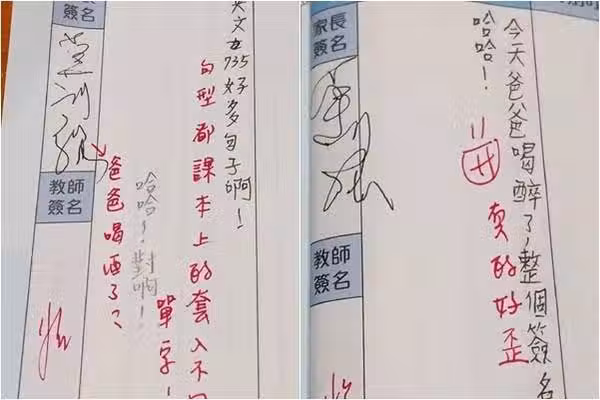 文
735好多句子啊！
句型都課本上的套入不
單字！
哈哈！對啊！
爸爸喝酒了？
簽名
教師
簽名
今天爸爸喝醉了，整個簽名
哈哈！
真的好歪
家長
簽名
教師
簽名